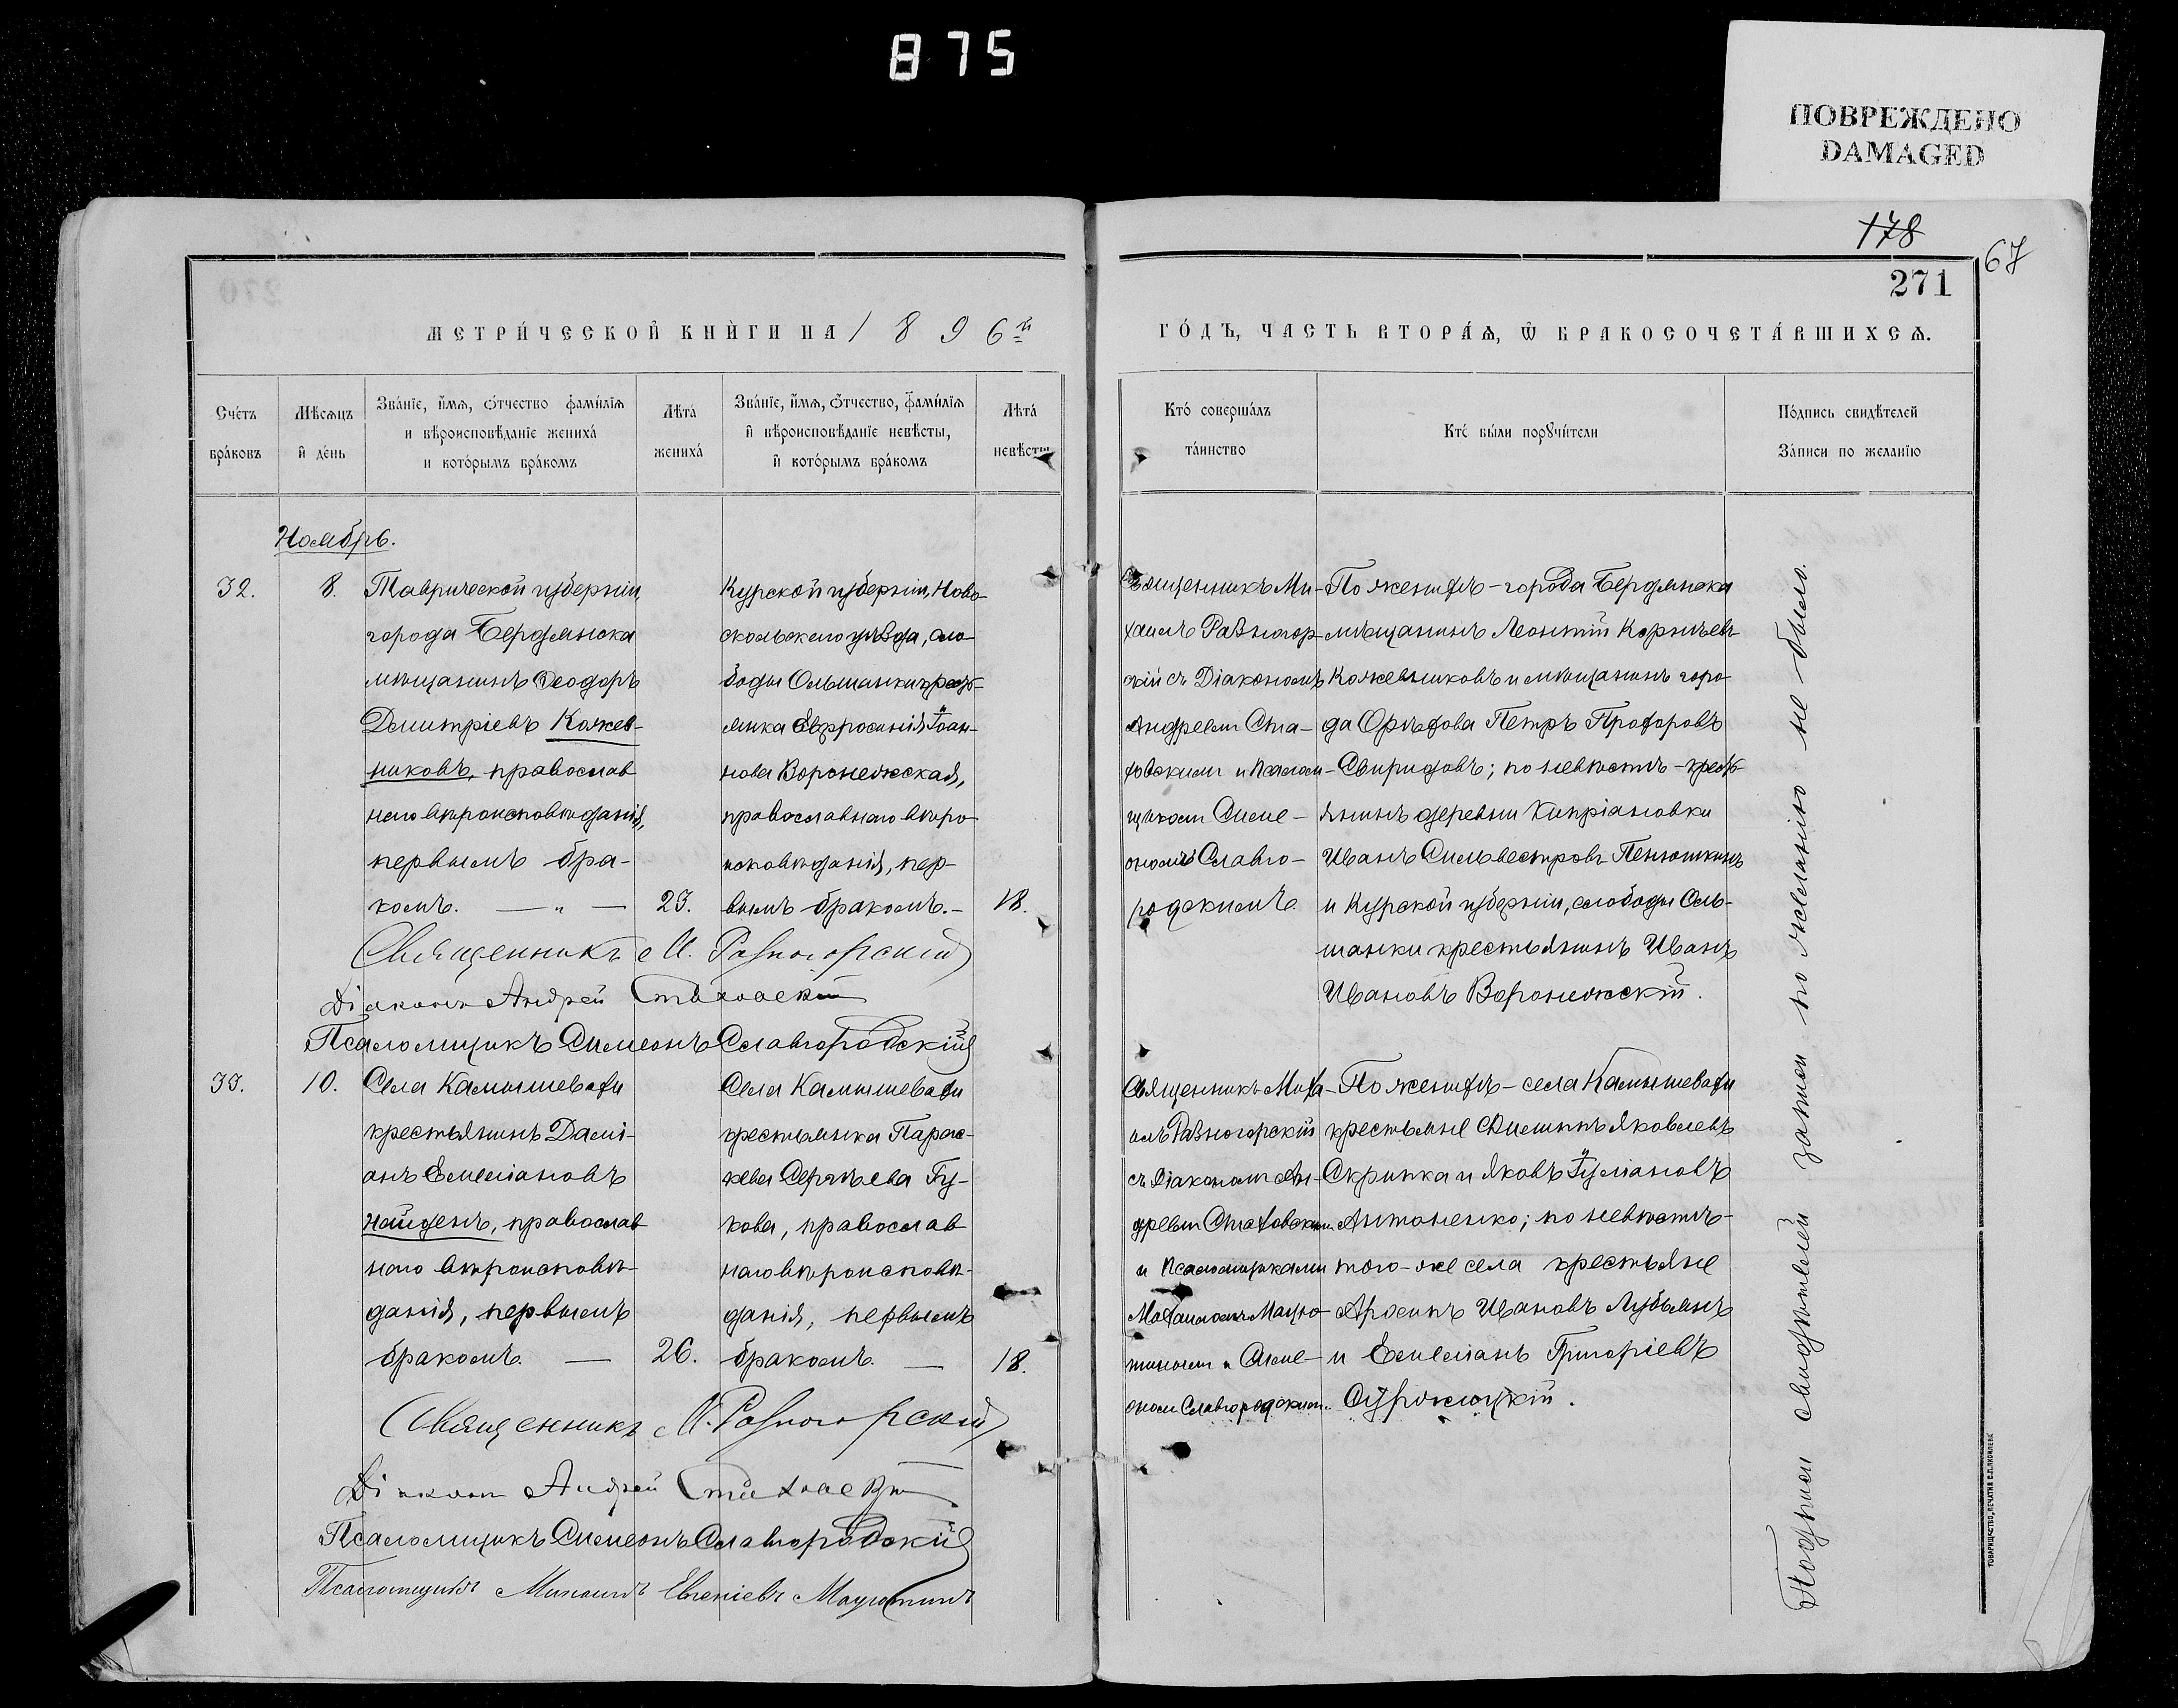 875
ПОВРЕЖДЕНО
DAMAGED
178
67
271
МЕТРИ́ЧЕСКОЙ КНИ́ГИ НА 1896й
ГО́ДЪ, ЧАСТЬ ВТОРА́Ѧ, Ѡ҆ БРАКОСОЧЕТА́ВШИХСѦ.
Сче́тъ
бра́ковъ
Мѣ́сѧцъ
и҆ де́нь
Зва́нїе, и҆́мѧ, ѻ҆́тчество фами́лїѧ
и вѣроисповѣ́данїе жениха́
и кото́рымъ бра́комъ
Лѣта̀
жениха́
Зва́нїе, и҆́мѧ, ѻ҆́тчество, фами́лїѧ
и҆ вѣроисповѣ́данїе невѣ́сты,
и҆ кото́рымъ бра́комъ
Лѣта̀
невѣ́сты
Кто̀ соверша́лъ
та́инство
Кто̀ бы́ли порꙋчи́тели
По́дпись свидѣ́телей
За́писи по жела́нїю
Ноябрь.
32.
8.
Таврической губерніи,
города Бердянска
мѣщанинъ Ѳеодоръ
Димитріевъ Кожев-
никовъ, православ
наго вѣроисповѣданія,
первымъ бра-
комъ. — „ —
23.
Курской губерніи, Ново-
оскольскаго уѣзда, сло
боды Ольшанки кресть-
янка Евфросинія Іоан-
нова Воронежская,
православнаго вѣро
исповѣданія, пер-
вымъ бракомъ. —
18.
Священникъ Ми-
хаилъ Разногор
скій съ Діакономъ
Андреемъ Ста-
ховскимъ и Псалом-
щикомъ Симе-
ономъ Славго-
родскимъ
По женихѣ – города Бердянска
мѣщанинъ Леонтій Корнѣевъ
Кожевниковъ и мѣщанинъ горо
да Орѣхова Петръ Прохоровъ
Свиридовъ; по невѣстѣ – кресть-
янинъ деревни Кипріановки
Иванъ Сильвестровъ Пенюшкинъ
и Курской губерніи, слободы Оль-
шанки крестьянинъ Иванъ
Ивановъ Воронежскій.
Священникъ М. Разногорскій
Діаконъ Андрей Стаховскій
Псаломщикъ Симеонъ Славгородскій
33.
10.
Села Камышевахи
крестьянинъ Дамі-
анъ Емеліановъ
Найденъ, православ
наго вѣроисповѣ-
данія, первымъ
бракомъ. —
26.
Села Камышевахи
крестьянка Парас-
кева Сергѣева Гу-
кова, православ
наго вѣроисповѣ-
данія, первымъ
бракомъ. —
18.
Священникъ Миха-
илъ Разногорскій
съ Діакономъ Ан-
дреемъ Стаховскимъ
и Псаломщиками
Михаиломъ Мацю-
тинымъ и Симе-
ономъ Славгородскимъ.
По женихѣ – села Камышевахи
крестьяне Филиппъ Яковлевъ
Скрипка и Яковъ Іуліановъ
Антоненко; по невѣстѣ –
того-же села крестьяне
Архипъ Ивановъ Лубянъ
и Емеліанъ Григоріевъ
Священникъ М. Разногорскій
Діаконъ Андрей Стаховскій
Псаломщикъ Симеонъ Славгородскій
Псаломщикъ Михаилъ Евгеніевъ Мацютинъ
Подписи свидѣтелей записи по желанію не было.
ТОВАРИЩЕСТВО „ПЕЧАТНЯ С.П. ЯКОВЛЕВА